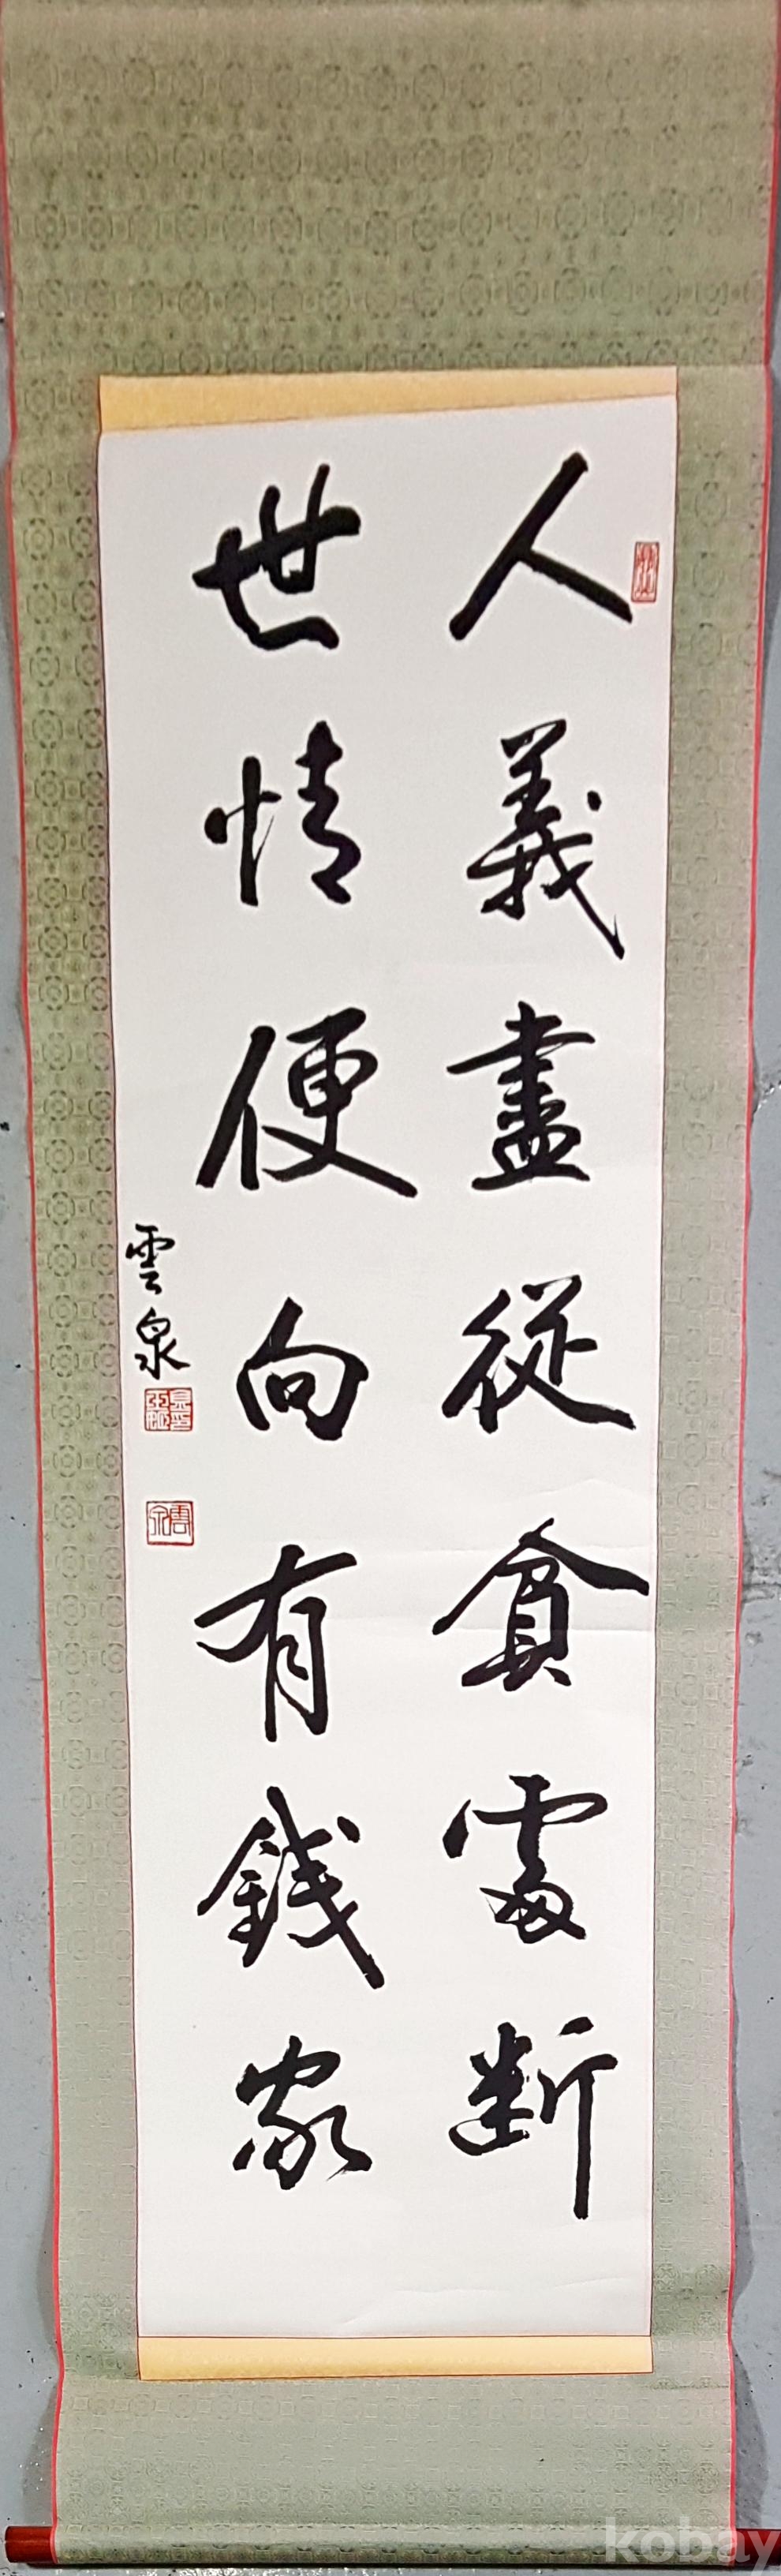 人義盡從貧處断
世情便向有錢家
雲泉
kobay